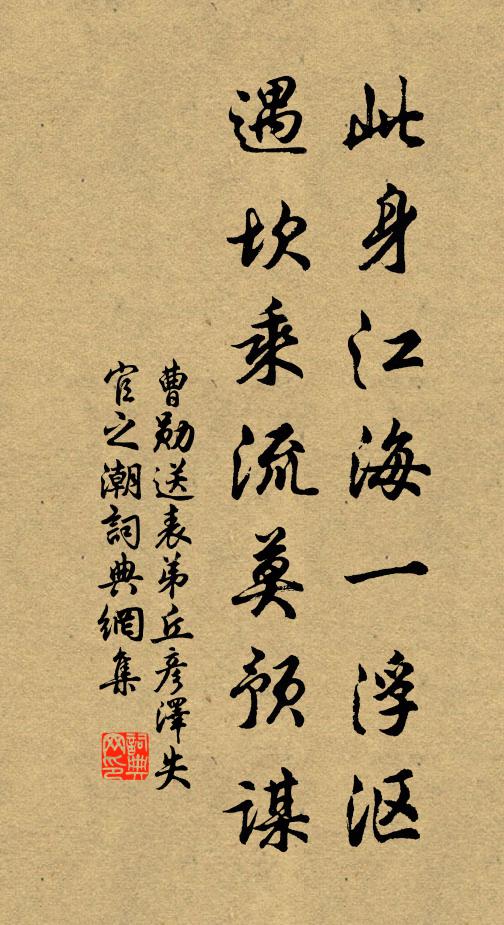 此身江海一浮沤
遇坎乘流莫预谋
曹勋送表弟丘彦澤失
官之潮詞典網集
詞典网印